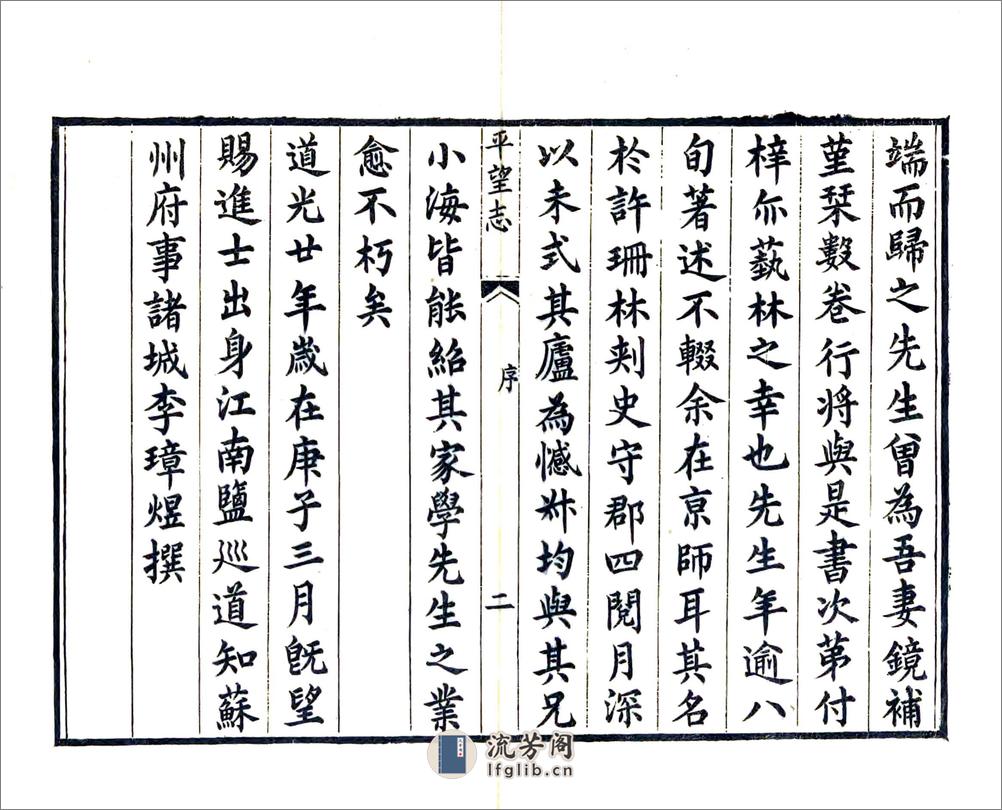 端而歸之先生曾為吾妻鏡補
堇栞數卷行将與是書次苐付
梓尒藝林之幸也先生年逾八
旬著述不輟余在京師耳其名
於許珊林刾史守郡四閱月深
以未式其廬為憾𣂏均與其兄
平望志
序
二
小海皆能紹其家學先生之業
愈不朽矣
道光廿年歲在庚子三月旣望
賜進士出身江南鹽巡道知蘇
州府事諸城李璋煜撰
流芳阁
lfglib.cn